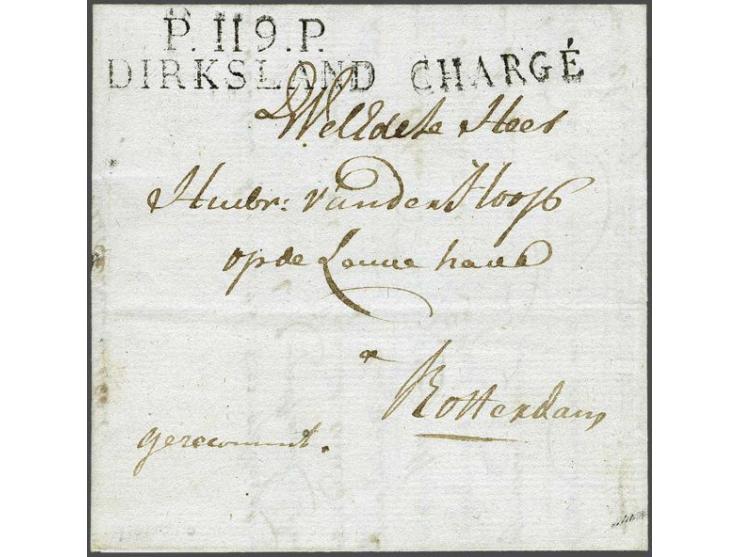 P. 119. P.
DIRKSLAND CHARGÉ
De WelEdele Heer
Huibr: van der Hoog
op de Leuve have
a
Rotterdam
gerecommt.